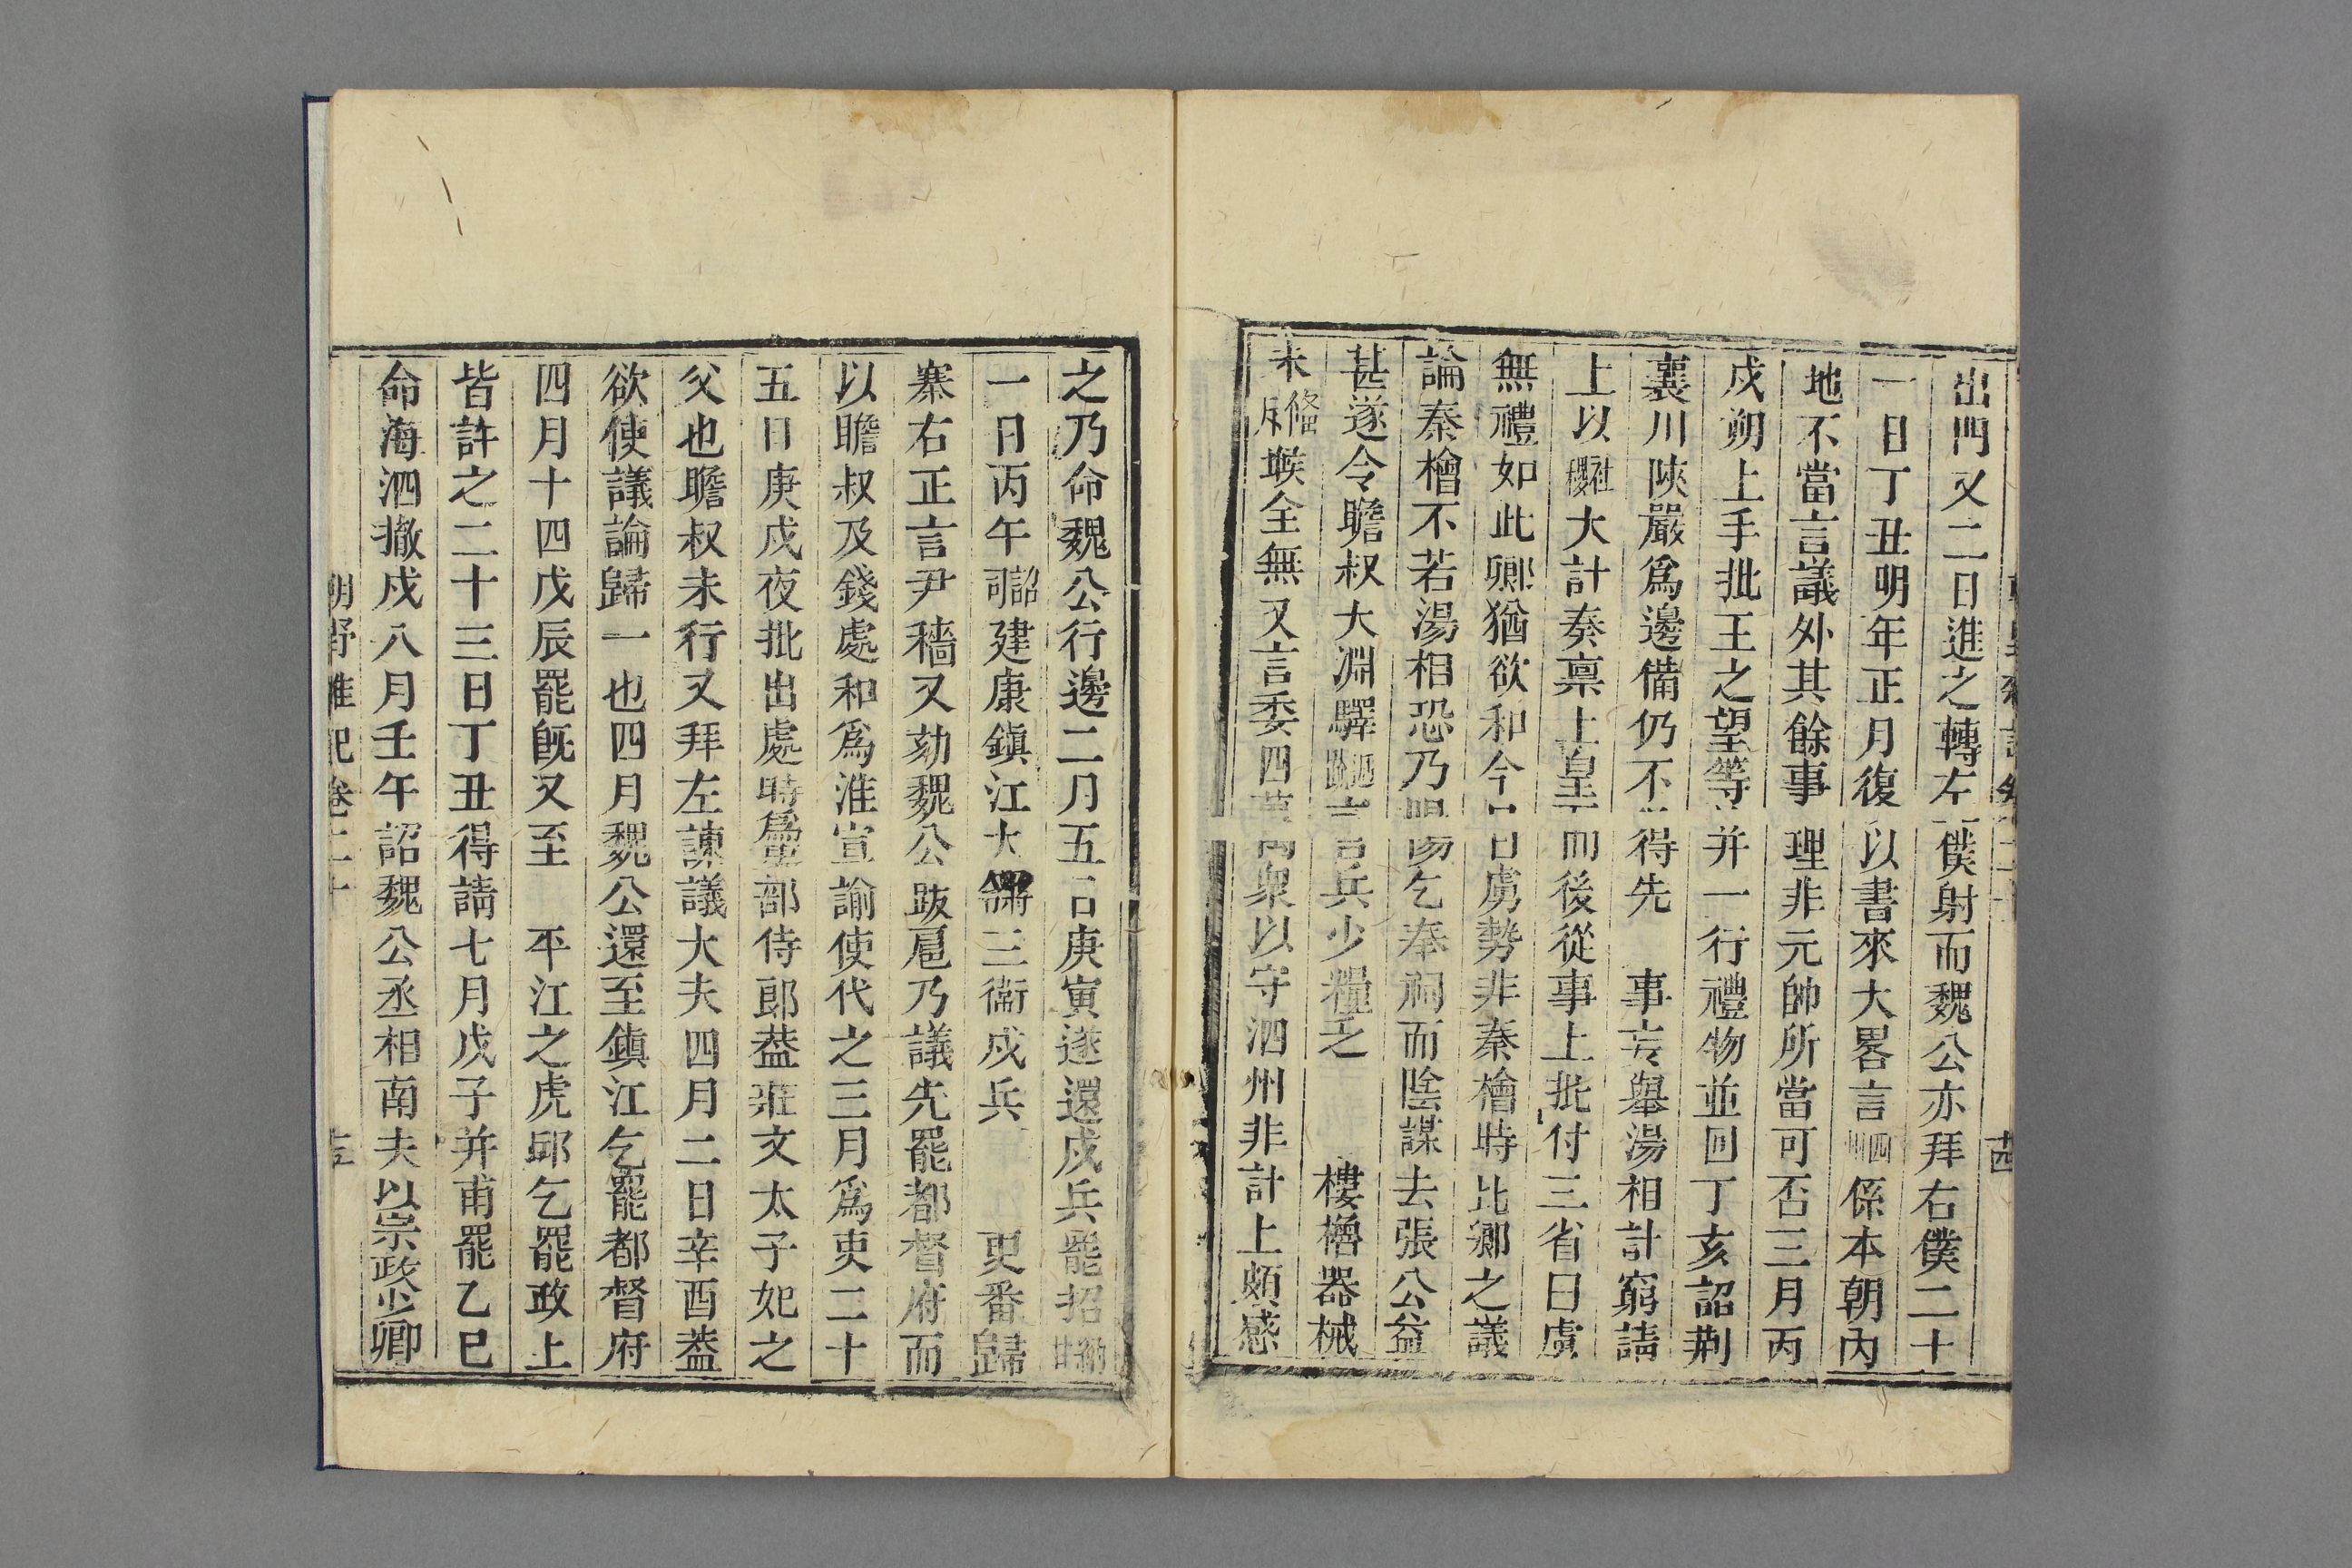 出門又二日進之轉左僕射而魏公亦拜右僕二十
一日丁丑明年正月復以書來大畧言四州係本朝內
地不當言議外其餘事理非元帥所當可否三月丙
戌朔上手批王之望等并一行禮物並回丁亥詔荆
襄川陝嚴爲邊備仍不得先事妄舉湯相計窮請
上以社稷大計奏禀上皇而後從事上批付三省曰虜
無禮如此卿猶欲和今日虜勢非秦檜時比卿之議
論秦檜不若湯相恐乃陽乞奉祠而陰謀去張公益
甚遂令瞻叔大淵驛言兵少糧乏樓櫓器械
未脩斥堠全無又言委四萬衆以守泗州非計上頗感
之乃命魏公行邊二月五日庚寅遂還戍兵罷招納廿
一日丙午詔司建康鎭江大三衙戍兵更番歸
寨右正言尹穡又劾魏公跋扈乃議先罷都督府而
以瞻叔及錢處和爲淮宣諭使代之三月爲吏二十
五日庚戌夜批出處時爲吏部侍郎葢莊文太子妃之
父也瞻叔未行又拜左諫議大夫四月二日辛酉葢
欲使議論歸一也四月魏公還至鎭江乞罷都督府
四月十四戊辰罷旣又至平江之虎邱乞罷政上
皆許之二十三日丁丑得請七月戊子并甫罷乙巳
命海泗撤戍八月壬午詔魏公丞相南夫以宗政少卿
朝野雜記卷二十